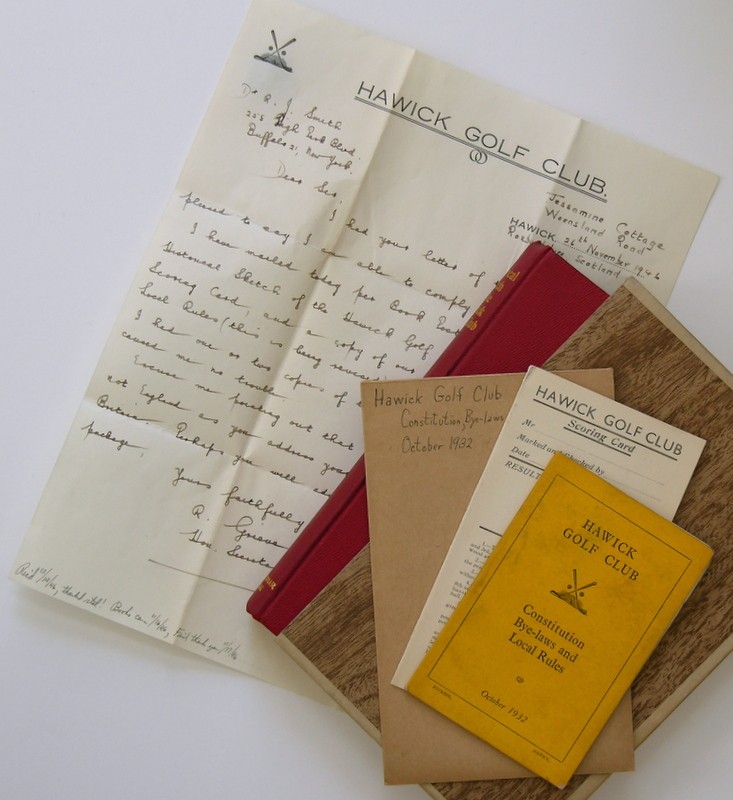 HAWICK GOLF CLUB.
Dr R. J. Smith
Blvd.
Buffalo 21, New York.
Jessamine Cottage
Weensland Road
HAWICK, 26th November 1946
Scotland
Dear Sir,
I had your letter of
pleased to say I am able to comply
I have mailed today per Book Post
Historical Sketch of the Hawick Golf
Scoring Card, and a copy of our
Local Rules (this is being revised
I had one or two copies of
caused me no trouble.
Excuse me pointing out that
not England as you address your
Perhaps you will
package.
Yours faithfully
R. Grieve
Hon.
Hawick Golf Club
Constitution, Bye-laws
October 1932
HAWICK GOLF CLUB
Scoring Card
Mr
Marked and Checked by
Date
RESULT
HAWICK
GOLF CLUB
Constitution
Bye-laws and
Local Rules
October 1932